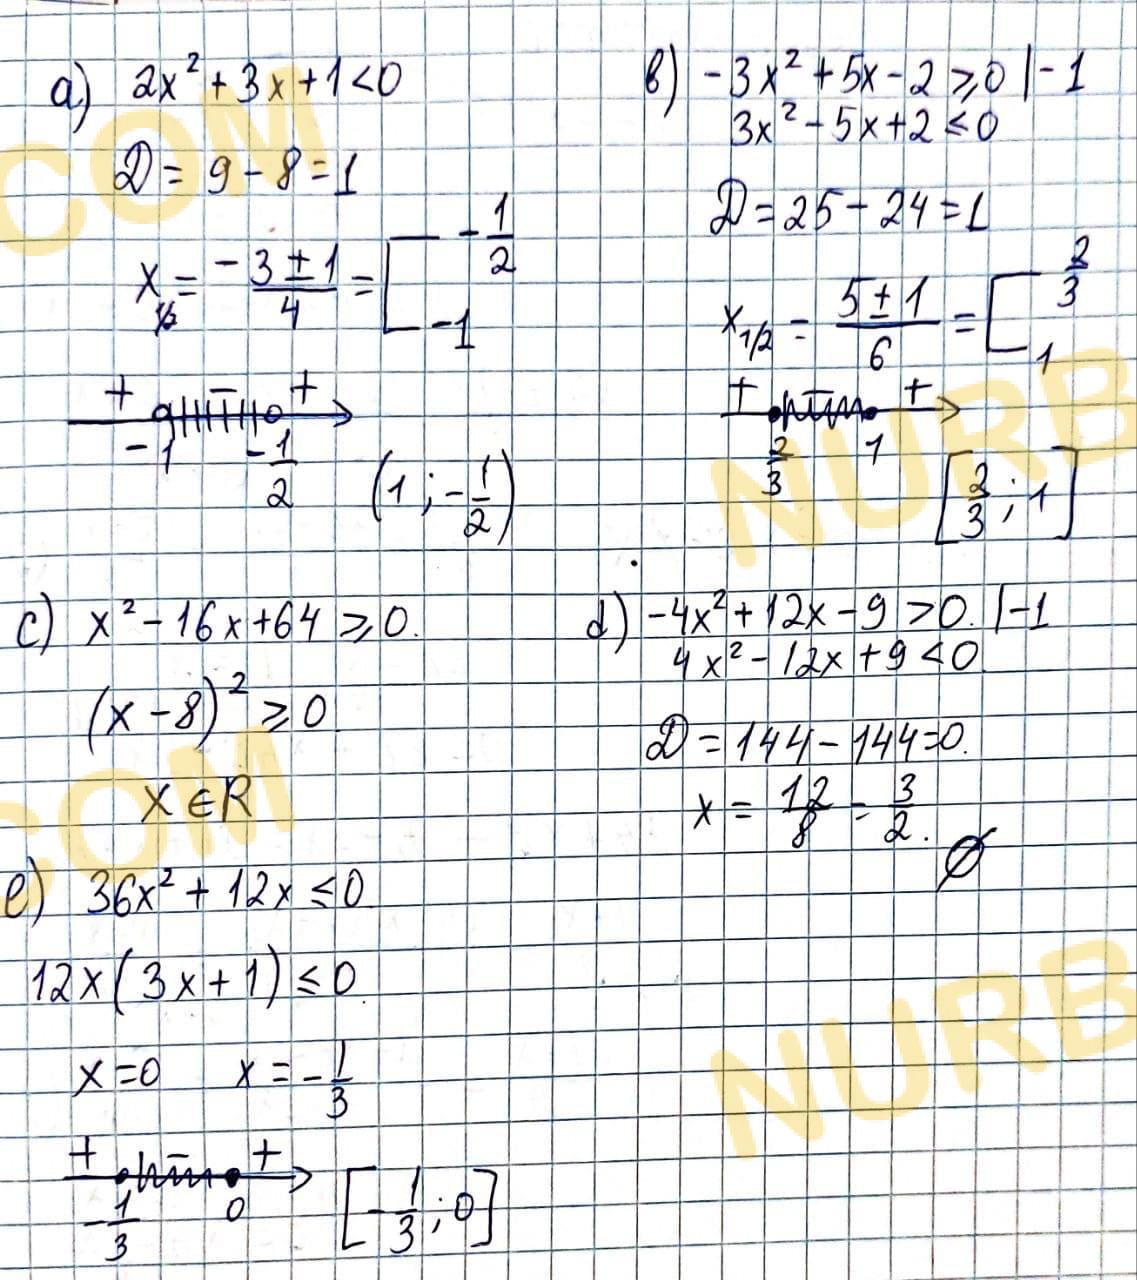 a) 2x² + 3x + 1 < 0
D = 9 - 8 = 1
x₁/₂ = (-3 ± 1)/4 = [ -1/2
-1
+ - +
-1 -1/2
(1 ; -1/2)
b) -3x² + 5x - 2 ⩾ 0 | -1
3x² - 5x + 2 ⩽ 0
D = 25 - 24 = 1
x₁/₂ = (5 ± 1)/6 = [ 2/3
1
+ - +
2/3 1
[2/3 ; 1]
c) x² - 16x + 64 ⩾ 0.
(x - 8)² ⩾ 0
x ∈ R
d) -4x² + 12x - 9 > 0. | -1
4x² - 12x + 9 < 0
D = 144 - 144 = 0.
x = 12/8 = 3/2.
∅
e) 36x² + 12x ⩽ 0
12x(3x + 1) ⩽ 0
x = 0 x = -1/3
+ - +
-1/3 0
[-1/3 ; 0]
COM
NURB
COM
NURB